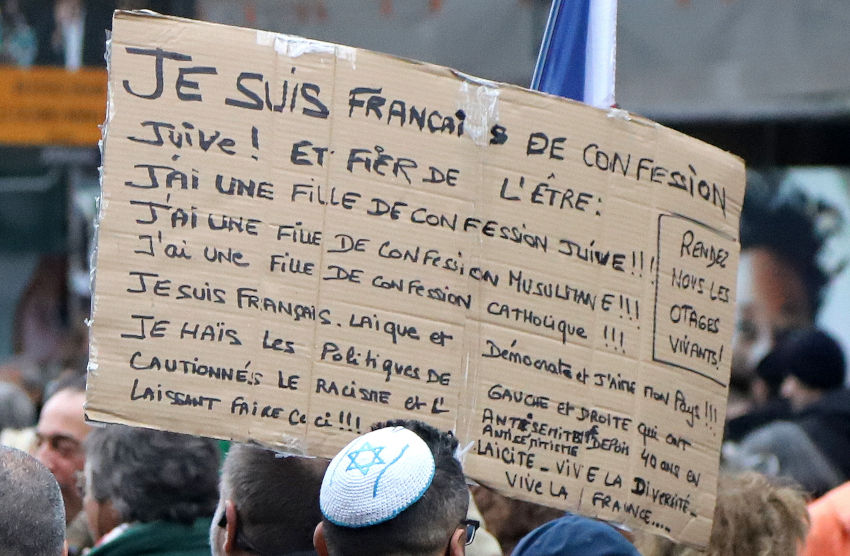 JE SUIS FRANÇAIS DE CONFESSION
JUIVE! ET FIER DE L'ÊTRE:
J'AI UNE FILLE DE CONFESSION JUIVE!!!
J'AI UNE FILLE DE CONFESION MUSULMANE!!!
J'AI UNE FILLE DE CONFESSION CATHOLIQUE !!!
JE SUIS FRANÇAIS. LAIQUE et Démocrate et J'AIME MON PAYS!!!
JE HAÏS les Politiques DE GAUCHE et DROITE qui ONT
CAUTIONNÉS LE RACISME et L'ANTISEMITISME DEPUIS 40 ANS EN
ANTISEMITISME
LAISSANT FAIRE CECI!!! LAICITE - VIVE LA DIVERSITÉ -
VIVE LA FRANCE....
RENDEZ
NOUS LES
OTAGES
VIVANTS!